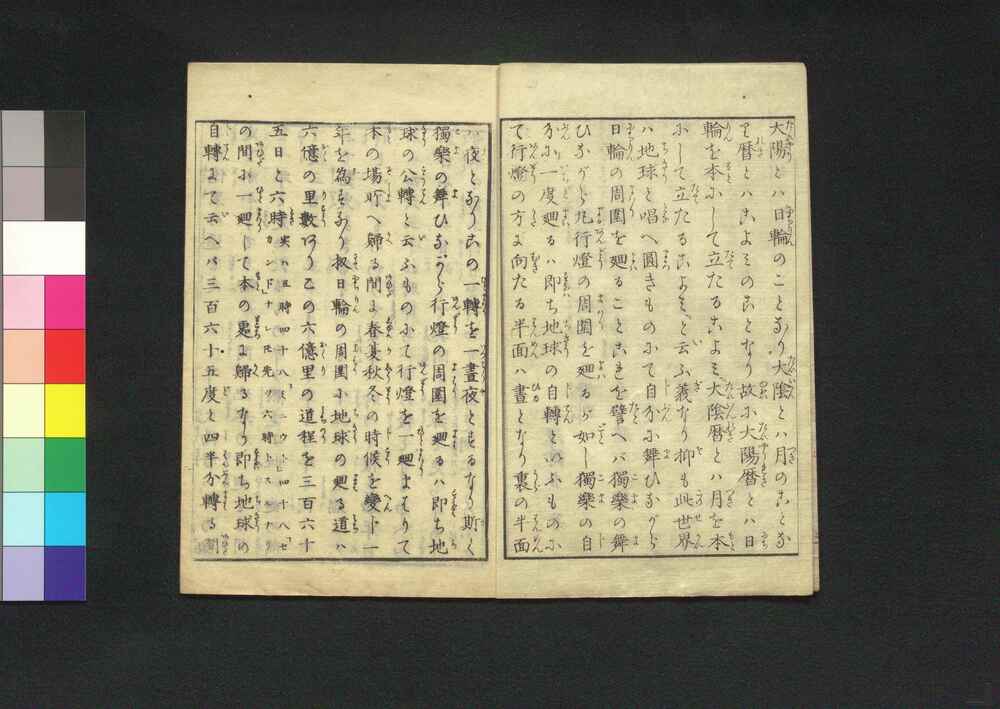 大陽とハ日輪のことなり大陰とハ月のことな
り暦とハこよみのことなり故に大陽暦とハ日
輪を本にして立たるこよミ大陰暦とハ月を本
にして立たるこよミと云ふ義なり抑も此世界
ハ地球と唱へ圓きものにて自分に舞ひながら
日輪の周圍を廻ること これを譬へバ獨樂の舞
ひながら丸行燈の周圍を廻るが如し獨樂の自
分に一度廻るハ即ち地球の自轉といふものに
て行燈の方に向たる半面ハ晝となり裏の半面
ハ夜となりこの一轉を一晝夜とするなり斯く
獨樂の舞ひながら行燈の周圍を廻るハ即ち地
球の公轉と云ふものにて行燈を一廻りまはりて
本の場所へ歸る間に春夏秋冬の時候を變ト一
年を為すなり扨日輪の周圍に地球の廻る道ハ
六億の里數あり この六億里の道程を三百六十
五日と六時 実ハ五時四十八ミニウト四十八セカンドナレ𪜈先ツ六時トスルナリ
の間に一廻して本の處に歸るなり即ち地球の
自轉にて云へバ三百六十五度と四半分轉る間